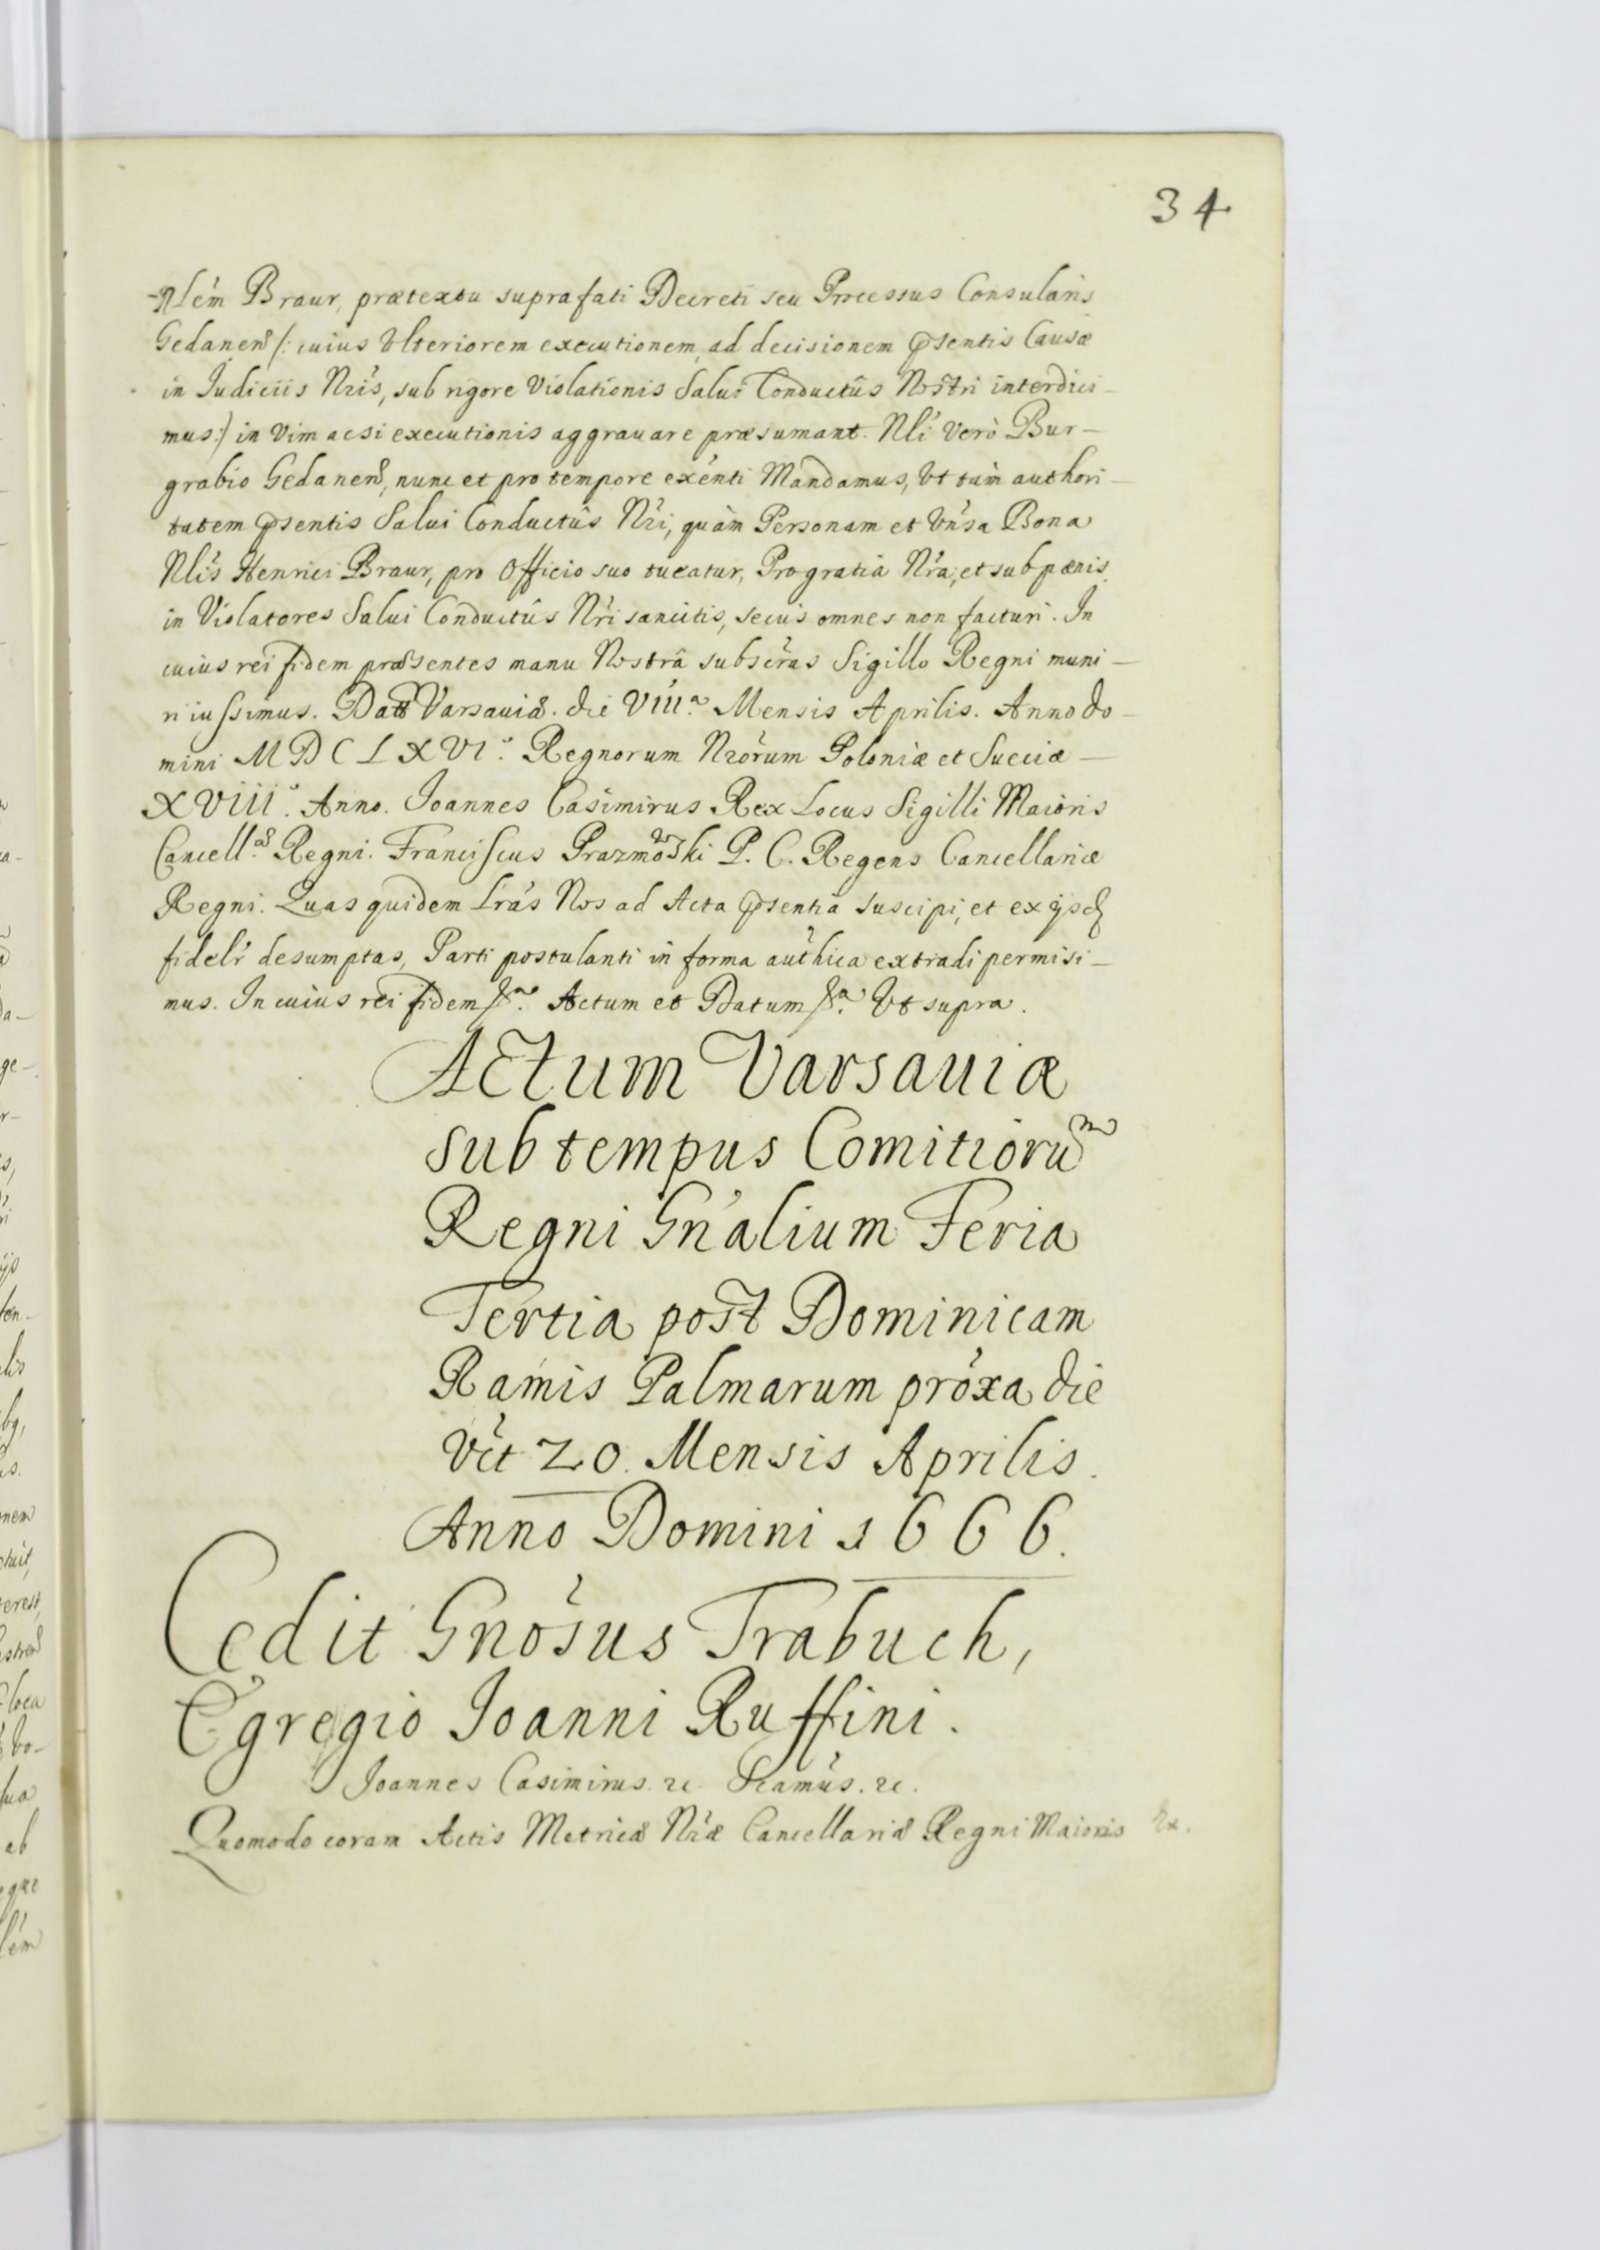 34
Nlem Braur, prætextu suprafati Decreti seu Processus Consularis
Gedanen /: cuius Vlteriorem executionem, ad decisionem psentis Causæ
in Judiciis Nris, sub rigore Violationis Salui Conductûs Nostri interdici-
mus:/ in Vim ac si executionis aggrauare præsumant. Nli Verò Bur-
grabio Gedanen, nunc et pro tempore exénti Mandamus, Vt tàm authori-
tatem psentis Salui Conductûs Nri, quàm Personam et Vnsa Bona
Nlis Henrici Braur, pro Officio suo tueatur, Pro gratia Nra, et sub pœnis
in Violatores Salui Conductûs Nri sancitis, secus omnes non facturi. In
cuius rei fidem præsentes manu Nostrâ subscras Sigillo Regni muni-
ri iussimus. Datt Varsauiæ. die VIII.a Mensis Aprilis. Anno do-
mini MDCLXVI.o Regnorum Nrorum Poloniæ et Sueciæ
XVIII.o Anno. Joannes Casimirus Rex Locus Sigilli Maioris
Cancell.æ Regni. Franciscus Prazmowski P. C. Regens Cancellariæ
Regni. Quas quidem Lras Nos ad Acta psentia suscipi, et ex ijsd
fidelr desumptas, Parti postulanti in forma authica extradi permisi-
mus. In cuius rei fidem &a. Actum et Datum &a. Vt supra.
Actum Varsauiæ
sub tempus Comitiorum
Regni Gnalium Feria
Tertia post Dominicam
Ramis Palmarum proxa die
Vct 20. Mensis Aprilis.
Anno Domini 1666.
Cedit Gnosus Trabuch,
Egregio Joanni Ruffini.
Joannes Casimirus. &c. Scamus. &c.
Quomodo coram Actis Metricæ Nræ Cancellariæ Regni Maioris